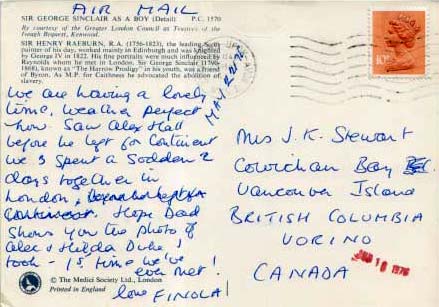 AIR MAIL
SIR GEORGE SINCLAIR AS A BOY (Detail) P.C. 1570
By courtesy of the Greater London Council as Trustees of the
Iveagh Bequest, Kenwood.
SIR HENRY RAEBURN, R.A. (1756-1823), the leading Scots
painter of his day, worked mainly in Edinburgh and was knighted
by George IV in 1822. His fine portraits were much influenced by
Reynolds whom he met in London. Sir George Sinclair (1790-
1868), known as "The Harrow Prodigy" in his youth, was a friend
of Byron. As M.P. for Caithness he advocated the abolition of
slavery.
We are having a lovely
time, weather perfect
now. Saw Alex Hall
before he left for Continent
we 3 spent a Sodden 2
days together in
London,
Continent. Hope Dad
shows you the photo of
Alec & Hilda Duke I
took - 1st time we'd
ever met!
love FINOLA
© The Medici Society Ltd., London
Printed in England
MAY 22/76
10P
Mrs J.K. Stewart
Cowichan Bay
Vancouver Island
BRITISH COLUMBIA
VORINO
CANADA
1976